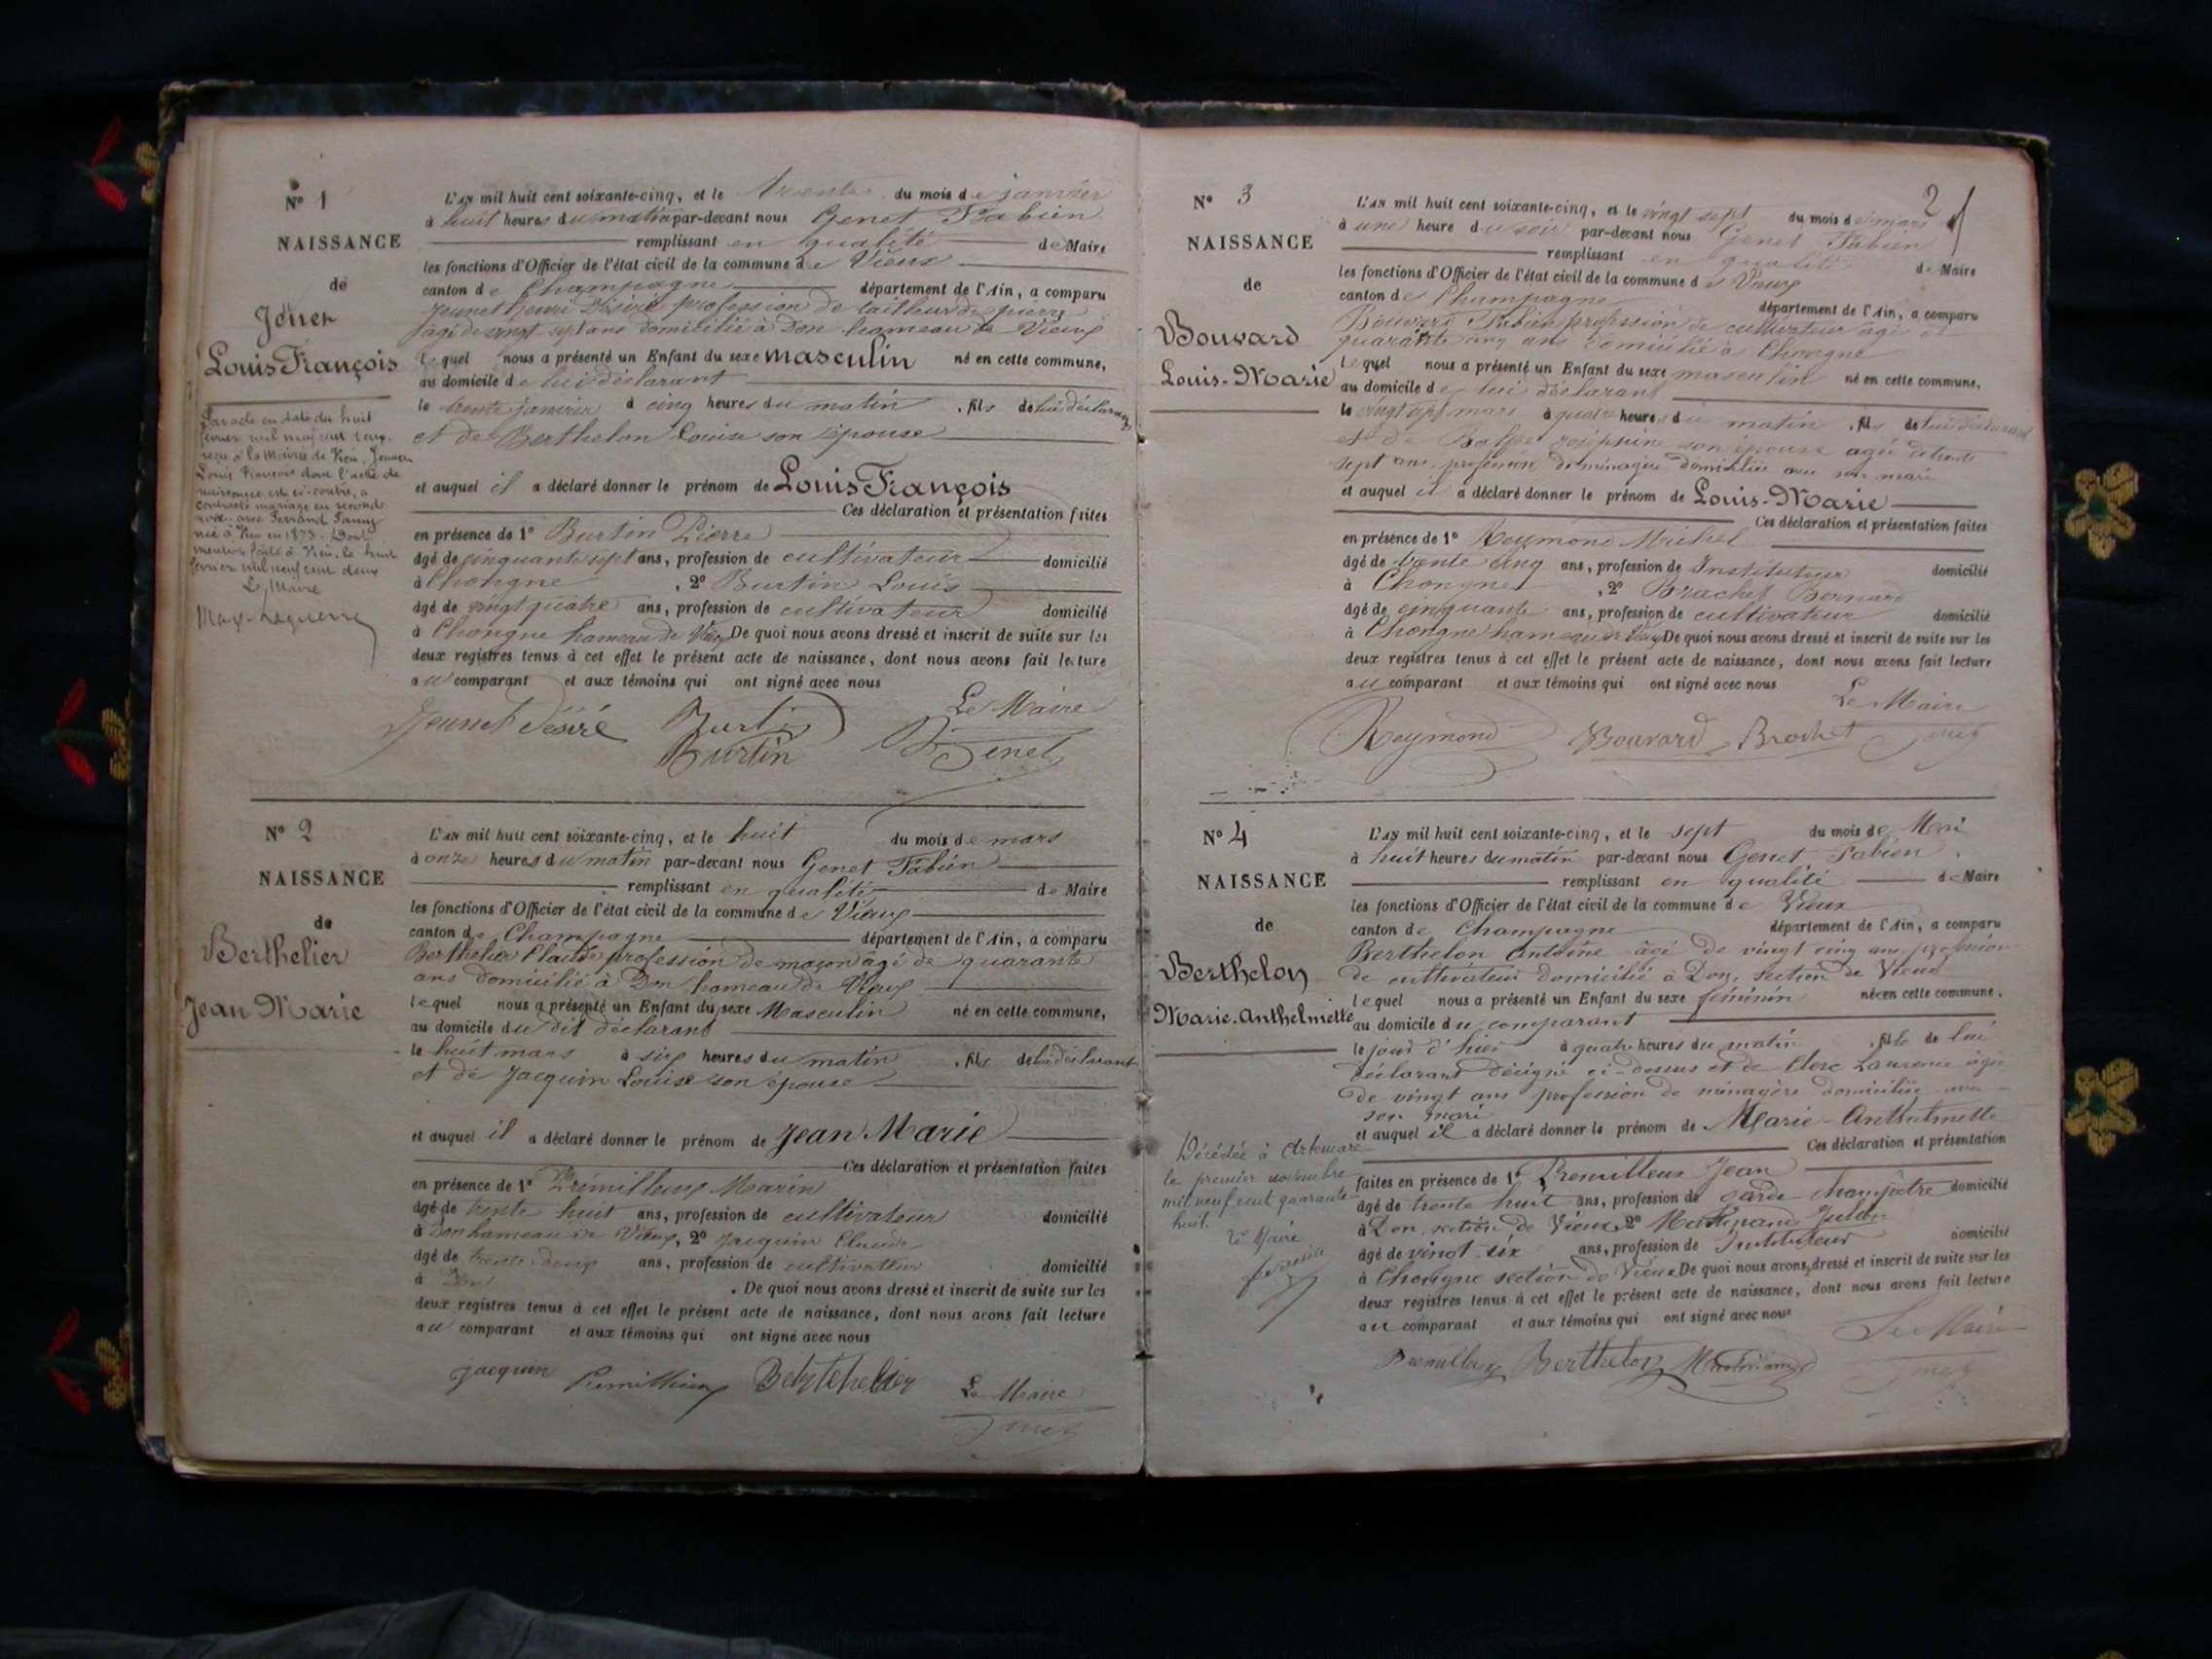 N° 1
NAISSANCE
de
Louis François
Par acte en date du huit
février mil neuf cent deux,
reçu à la Mairie de Vieu,
Louis François dont l'acte de
naissance est ci-contre, a
contracté mariage en seconde
noce avec Ferrand Fanny
née à Vieu en 1873. Dont
mention faite à Vieu, le huit
février mil neuf cent deux
Le Maire
L'AN mil huit cent soixante-cinq, et le trente du mois de janvier
à huit heures du matin par-devant nous Genet Fabien
remplissant en qualité de Maire
les fonctions d'Officier de l'état civil de la commune de Vieux
canton de Champagne département de l'Ain, a comparu
Jeunet Henri Désiré profession de tailleur de pierre
âgé de vingt sept ans domicilié à Don hameau de Vieux
lequel nous a présenté un Enfant du sexe masculin né en cette commune,
au domicile de lui déclarant
le trente janvier à cinq heures du matin, fils de lui déclarant
et de Berthelon Louise son épouse
et auquel il a déclaré donner le prénom de Louis François
Ces déclaration et présentation faites
en présence de 1° Burtin Pierre
âgé de cinquante sept ans, profession de cultivateur domicilié
à Chongne, 2° Burtin Louis
âgé de vingt quatre ans, profession de cultivateur domicilié
à Chongne hameau de Vieux De quoi nous avons dressé et inscrit de suite sur les
deux registres tenus à cet effet le présent acte de naissance, dont nous avons fait lecture
au comparant et aux témoins qui ont signé avec nous
Le Maire
Jeunet Désiré Burtin Genet
Burtin
N° 2
NAISSANCE
de
Berthelier
Jean Marie
L'AN mil huit cent soixante-cinq, et le huit du mois de mars
à onze heures du matin par-devant nous Genet Fabien
remplissant en qualité de Maire
les fonctions d'Officier de l'état civil de la commune de Vieux
canton de Champagne département de l'Ain, a comparu
Berthelier Claude profession de maçon âgé de quarante
ans domicilié à Don hameau de Vieux
lequel nous a présenté un Enfant du sexe Masculin né en cette commune,
au domicile du dit déclarant
le huit mars à six heures du matin, fils de lui déclarant
et de Jacquin Louise son épouse
et auquel il a déclaré donner le prénom de Jean Marie
Ces déclaration et présentation faites
en présence de 1° Prémilleux Marin
âgé de trente huit ans, profession de cultivateur domicilié
à Don hameau de Vieux, 2° Jacquin Claude
âgé de trente deux ans, profession de cultivateur domicilié
à Don. De quoi nous avons dressé et inscrit de suite sur les
deux registres tenus à cet effet le présent acte de naissance, dont nous avons fait lecture
au comparant et aux témoins qui ont signé avec nous
jacquin Premilleux Berthelier Le Maire
N° 3
NAISSANCE
de
Bouvard
Louis-Marie
2
L'AN mil huit cent soixante-cinq, et le vingt sept du mois de mars
à une heure du soir par-devant nous Genet Fabien
remplissant en qualité de Maire
les fonctions d'Officier de l'état civil de la commune de Vieux
canton de Champagne département de l'Ain, a comparu
Bouvard Fabien profession de cultivateur âgé de
quarante cinq ans domicilié à Chongne
lequel nous a présenté un Enfant du sexe masculin né en cette commune,
au domicile de lui déclarant
le vingt sept mars à quatre heures du matin, fils de lui déclarant
et de son épouse agée de trente
sept ans profession de ménagère domiciliée avec son mari
et auquel il a déclaré donner le prénom de Louis-Marie
Ces déclaration et présentation faites
en présence de 1° Reymond Michel
âgé de trente cinq ans, profession de Instituteur domicilié
à Chongne, 2° Brachet Bernard
âgé de cinquante ans, profession de cultivateur domicilié
à Chongne hameau de Vieux De quoi nous avons dressé et inscrit de suite sur les
deux registres tenus à cet effet le présent acte de naissance, dont nous avons fait lecture
au comparant et aux témoins qui ont signé avec nous
Le Maire
Reymond Bouvard Brachet
N° 4
NAISSANCE
de
Berthelon
Marie-Anthelmette
Décédée à Artemare
le premier novembre
mil neuf cent quarante
huit.
Le Maire
L'AN mil huit cent soixante-cinq, et le sept du mois de Mai
à huit heures du matin par-devant nous Genet Fabien
remplissant en qualité de Maire
les fonctions d'Officier de l'état civil de la commune de Vieux
canton de Champagne département de l'Ain, a comparu
Berthelon Antoine âgé de vingt cinq ans profession
de cultivateur domicilié à Don, section de Vieux
lequel nous a présenté un Enfant du sexe féminin né en cette commune,
au domicile du comparant
le jour d'hier à quatre heures du matin, fille de lui
déclarant désigné ci-dessus et de Clerc Laurence âgée
de vingt ans profession de ménagère domiciliée avec
son mari
et auquel il a déclaré donner le prénom de Marie-Anthelmette
Ces déclaration et présentation
faites en présence de 1° Premilleux Jean
âgé de trente huit ans, profession de garde-champêtre domicilié
à Don section de Vieux, 2°
âgé de vingt-six ans, profession de Instituteur domicilié
à Chongne section de Vieux De quoi nous avons dressé et inscrit de suite sur les
deux registres tenus à cet effet le présent acte de naissance, dont nous avons fait lecture
au comparant et aux témoins qui ont signé avec nous
Le Maire
Premilleux Berthelon